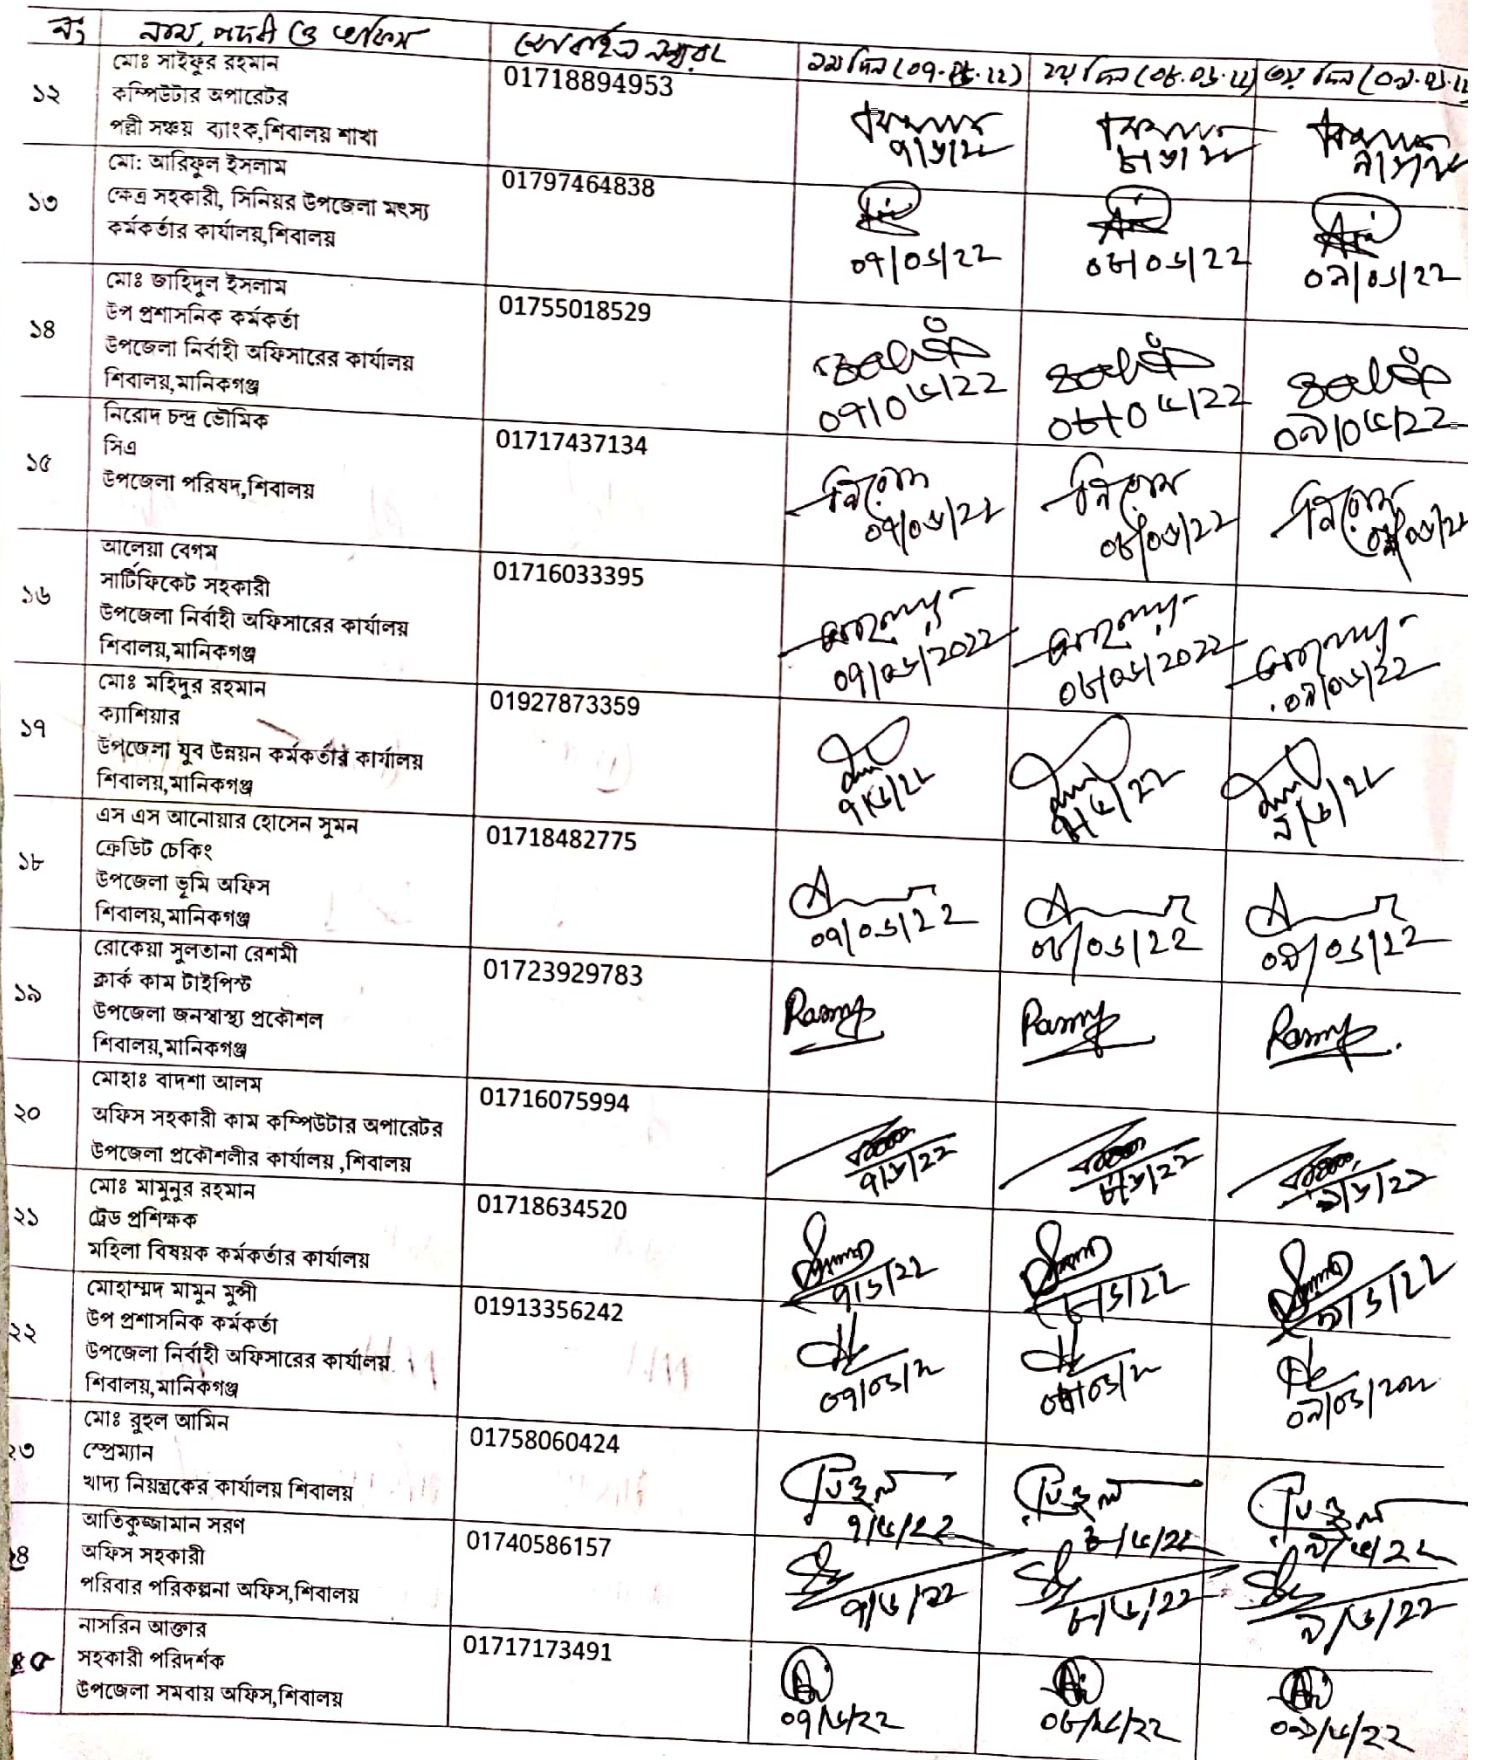 নং
নাম, পদবী ও অফিস
মোবাইল নম্বর
১ম দিন (০৭.০৬.২২)
২য় দিন (০৮.০৬.২২)
৩য় দিন (০৯.০৬.২২
১২
মোঃ সাইফুর রহমান
কম্পিউটার অপারেটর
পল্লী সঞ্চয় ব্যাংক,শিবালয় শাখা
01718894953
১৩
মো: আরিফুল ইসলাম
ক্ষেত্র সহকারী, সিনিয়র উপজেলা মৎস্য
কর্মকর্তার কার্যালয়,শিবালয়
01797464838
০৭/০৬/22
০৮/০৬/22
০৯/০৬/22
১৪
মোঃ জাহিদুল ইসলাম
উপ প্রশাসনিক কর্মকর্তা
উপজেলা নির্বাহী অফিসারের কার্যালয়
শিবালয়,মানিকগঞ্জ
01755018529
০৭/০৬/22
০৮/০৬/22
০৯/০৬/22
১৫
নিরোদ চন্দ্র ভৌমিক
সিএ
উপজেলা পরিষদ,শিবালয়
01717437134
নিরোদ
০৭/০৬/22
নিরোদ
০৮/০৬/22
নিরোদ
১৬
আলেয়া বেগম
সার্টিফিকেট সহকারী
উপজেলা নির্বাহী অফিসারের কার্যালয়
শিবালয়,মানিকগঞ্জ
01716033395
০৭/০৬/2022
০৮/০৬/2022
০৯/০৬/22
১৭
মোঃ মহিদুর রহমান
ক্যাশিয়ার
উপজেলা যুব উন্নয়ন কর্মকর্তার কার্যালয়
শিবালয়,মানিকগঞ্জ
01927873359
৭/৬/22
৮/৬/22
৯/৬/22
১৮
এস এস আনোয়ার হোসেন সুমন
ক্রেডিট চেকিং
উপজেলা ভূমি অফিস
শিবালয়,মানিকগঞ্জ
01718482775
০৭/০৬/22
০৮/০৬/22
০৯/০৬/22
১৯
রোকেয়া সুলতানা রেশমী
ক্লার্ক কাম টাইপিস্ট
উপজেলা জনস্বাস্থ্য প্রকৌশল
শিবালয়,মানিকগঞ্জ
01723929783
২০
মোহাঃ বাদশা আলম
অফিস সহকারী কাম কম্পিউটার অপারেটর
উপজেলা প্রকৌশলীর কার্যালয় ,শিবালয়
01716075994
৭/৬/22
৮/৬/22
৯/৬/22
২১
মোঃ মামুনুর রহমান
ট্রেড প্রশিক্ষক
মহিলা বিষয়ক কর্মকর্তার কার্যালয়
01718634520
৭/৬/22
৮/৬/22
৯/৬/22
২২
মোহাম্মদ মামুন মুন্সী
উপ প্রশাসনিক কর্মকর্তা
উপজেলা নির্বাহী অফিসারের কার্যালয়
শিবালয়,মানিকগঞ্জ
01913356242
২৩
মোঃ রুহুল আমিন
স্প্রেম্যান
খাদ্য নিয়ন্ত্রকের কার্যালয় শিবালয়
01758060424
রুহুল
৭/৬/22
রুহুল
৮/৬/22
রুহুল
৯/৬/22
২৪
আতিকুজ্জামান সরণ
অফিস সহকারী
পরিবার পরিকল্পনা অফিস,শিবালয়
01740586157
৭/৬/22
৮/৬/22
৯/৬/22
২৫
নাসরিন আক্তার
সহকারী পরিদর্শক
উপজেলা সমবায় অফিস,শিবালয়
01717173491
০৭/৬/22
০৮/৬/22
০৯/৬/22